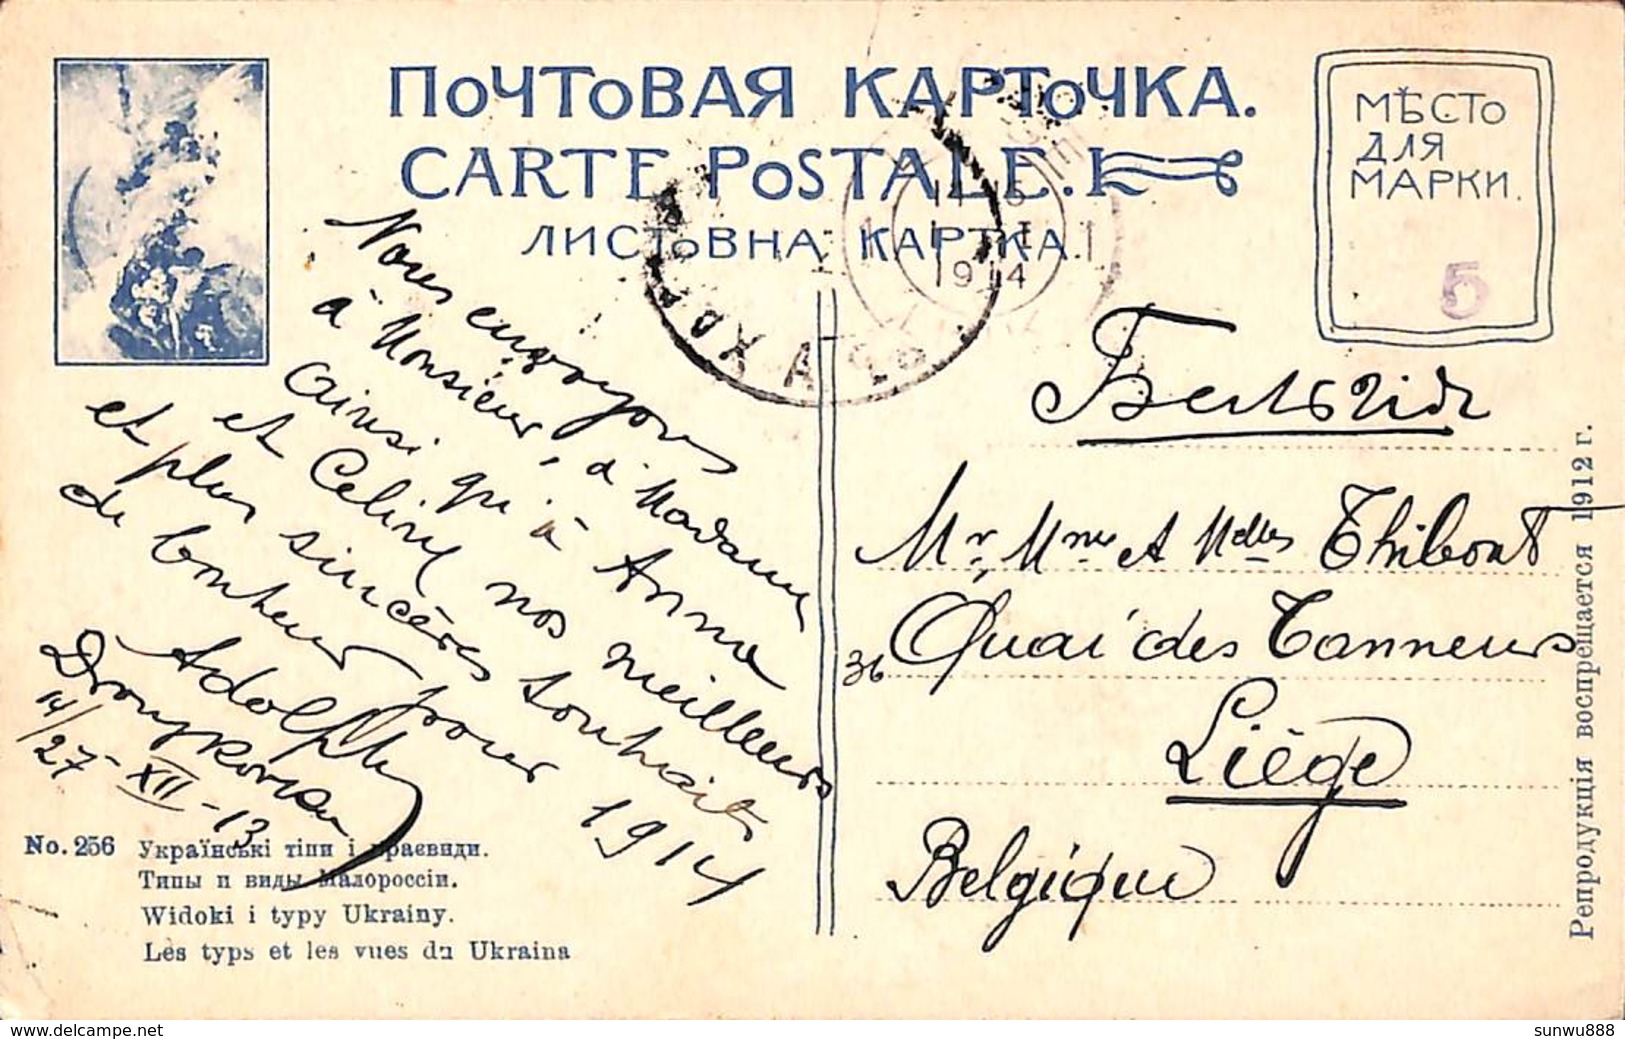 ПОЧТОВАЯ КАРТОЧКА.
CARTE POSTALE.
ЛИСТОВНА КАРТКА.
МѢСТО
ДЛЯ
МАРКИ.
5
14-15
I
1914
Nous envoyons
à Monsieur, à Madame
ainsi qu'à Anna
et Céline nos meilleurs
et plus sincères souhaits
de bonheur pour 1914
Adolphe
14/27-XII-13
Бельгія
Mr, Mme et Melles Thibout
36 Quai des Tanneurs
Liège
Belgique
No. 256 Українські тіпи і краєвиди.
Типы и виды Малороссіи.
Widoki i typy Ukrainy.
Les typs et les vues du Ukraina
Репродукція воспрещается 1912 г.
sunwu888
delcampe.net